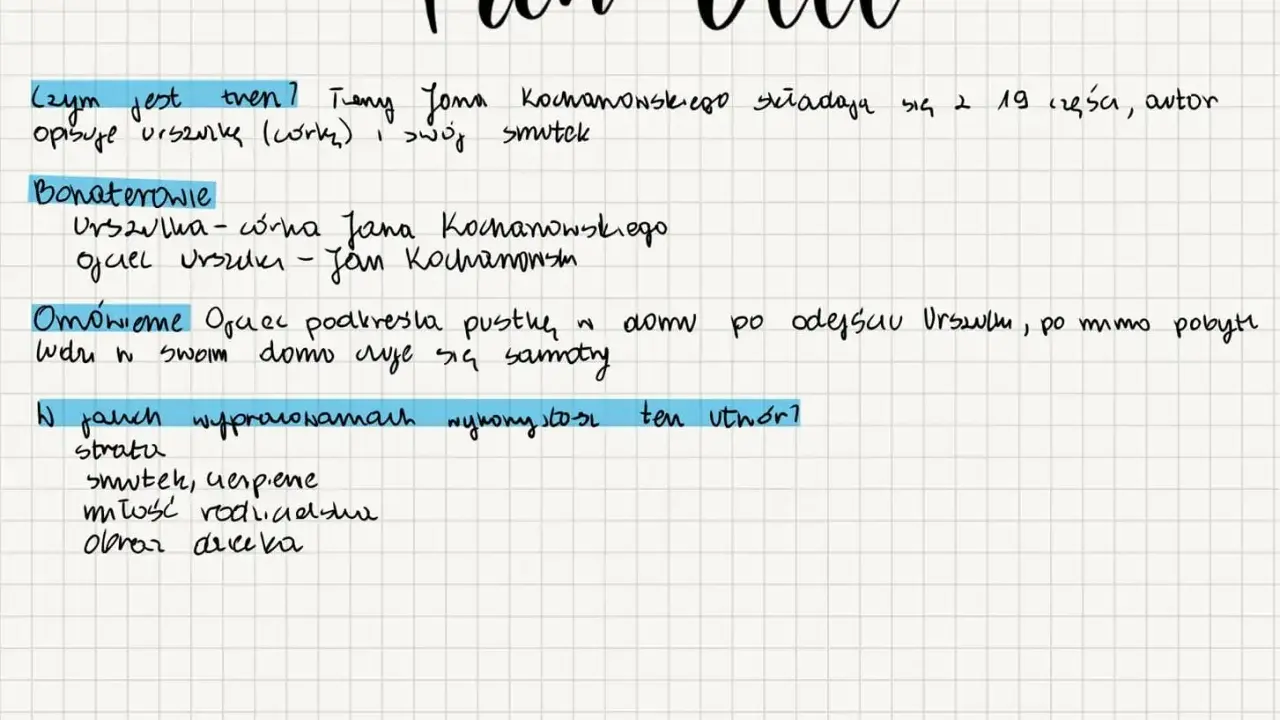 Czym jest tren? Treny Jana Kochanowskiego składają się z 19 części, autor
opisuje urszulkę (córkę) i swój smutek
Bohaterowie
Urszulka - córka Jana Kochanowskiego
ojciec Urszulki - Jan Kochanowski
Omówienie Ojciec podkreśla pustkę w domu po odejściu Urszulki, po mimo pobytu
ludzi w swoim domo czuje się samotny
W jakich wypracowaniach wykorzystasz ten utwór?
strata
smutek, cierpienie
miłość rodzicielska
obraz dziecka